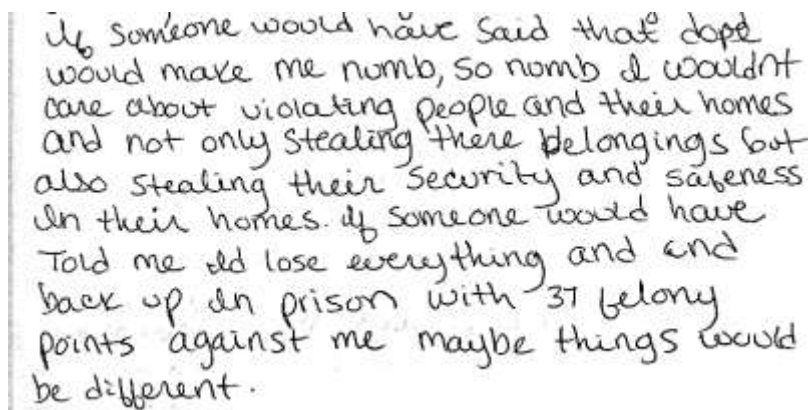 if someone would have said that dope
would make me numb, so numb I wouldnt
care about violating people and their homes
and not only stealing there belongings but
also stealing their security and safeness
In their homes. if someone would have
Told me Id lose everything and end
back up In prison with 37 felony
points against me maybe things would
be different.